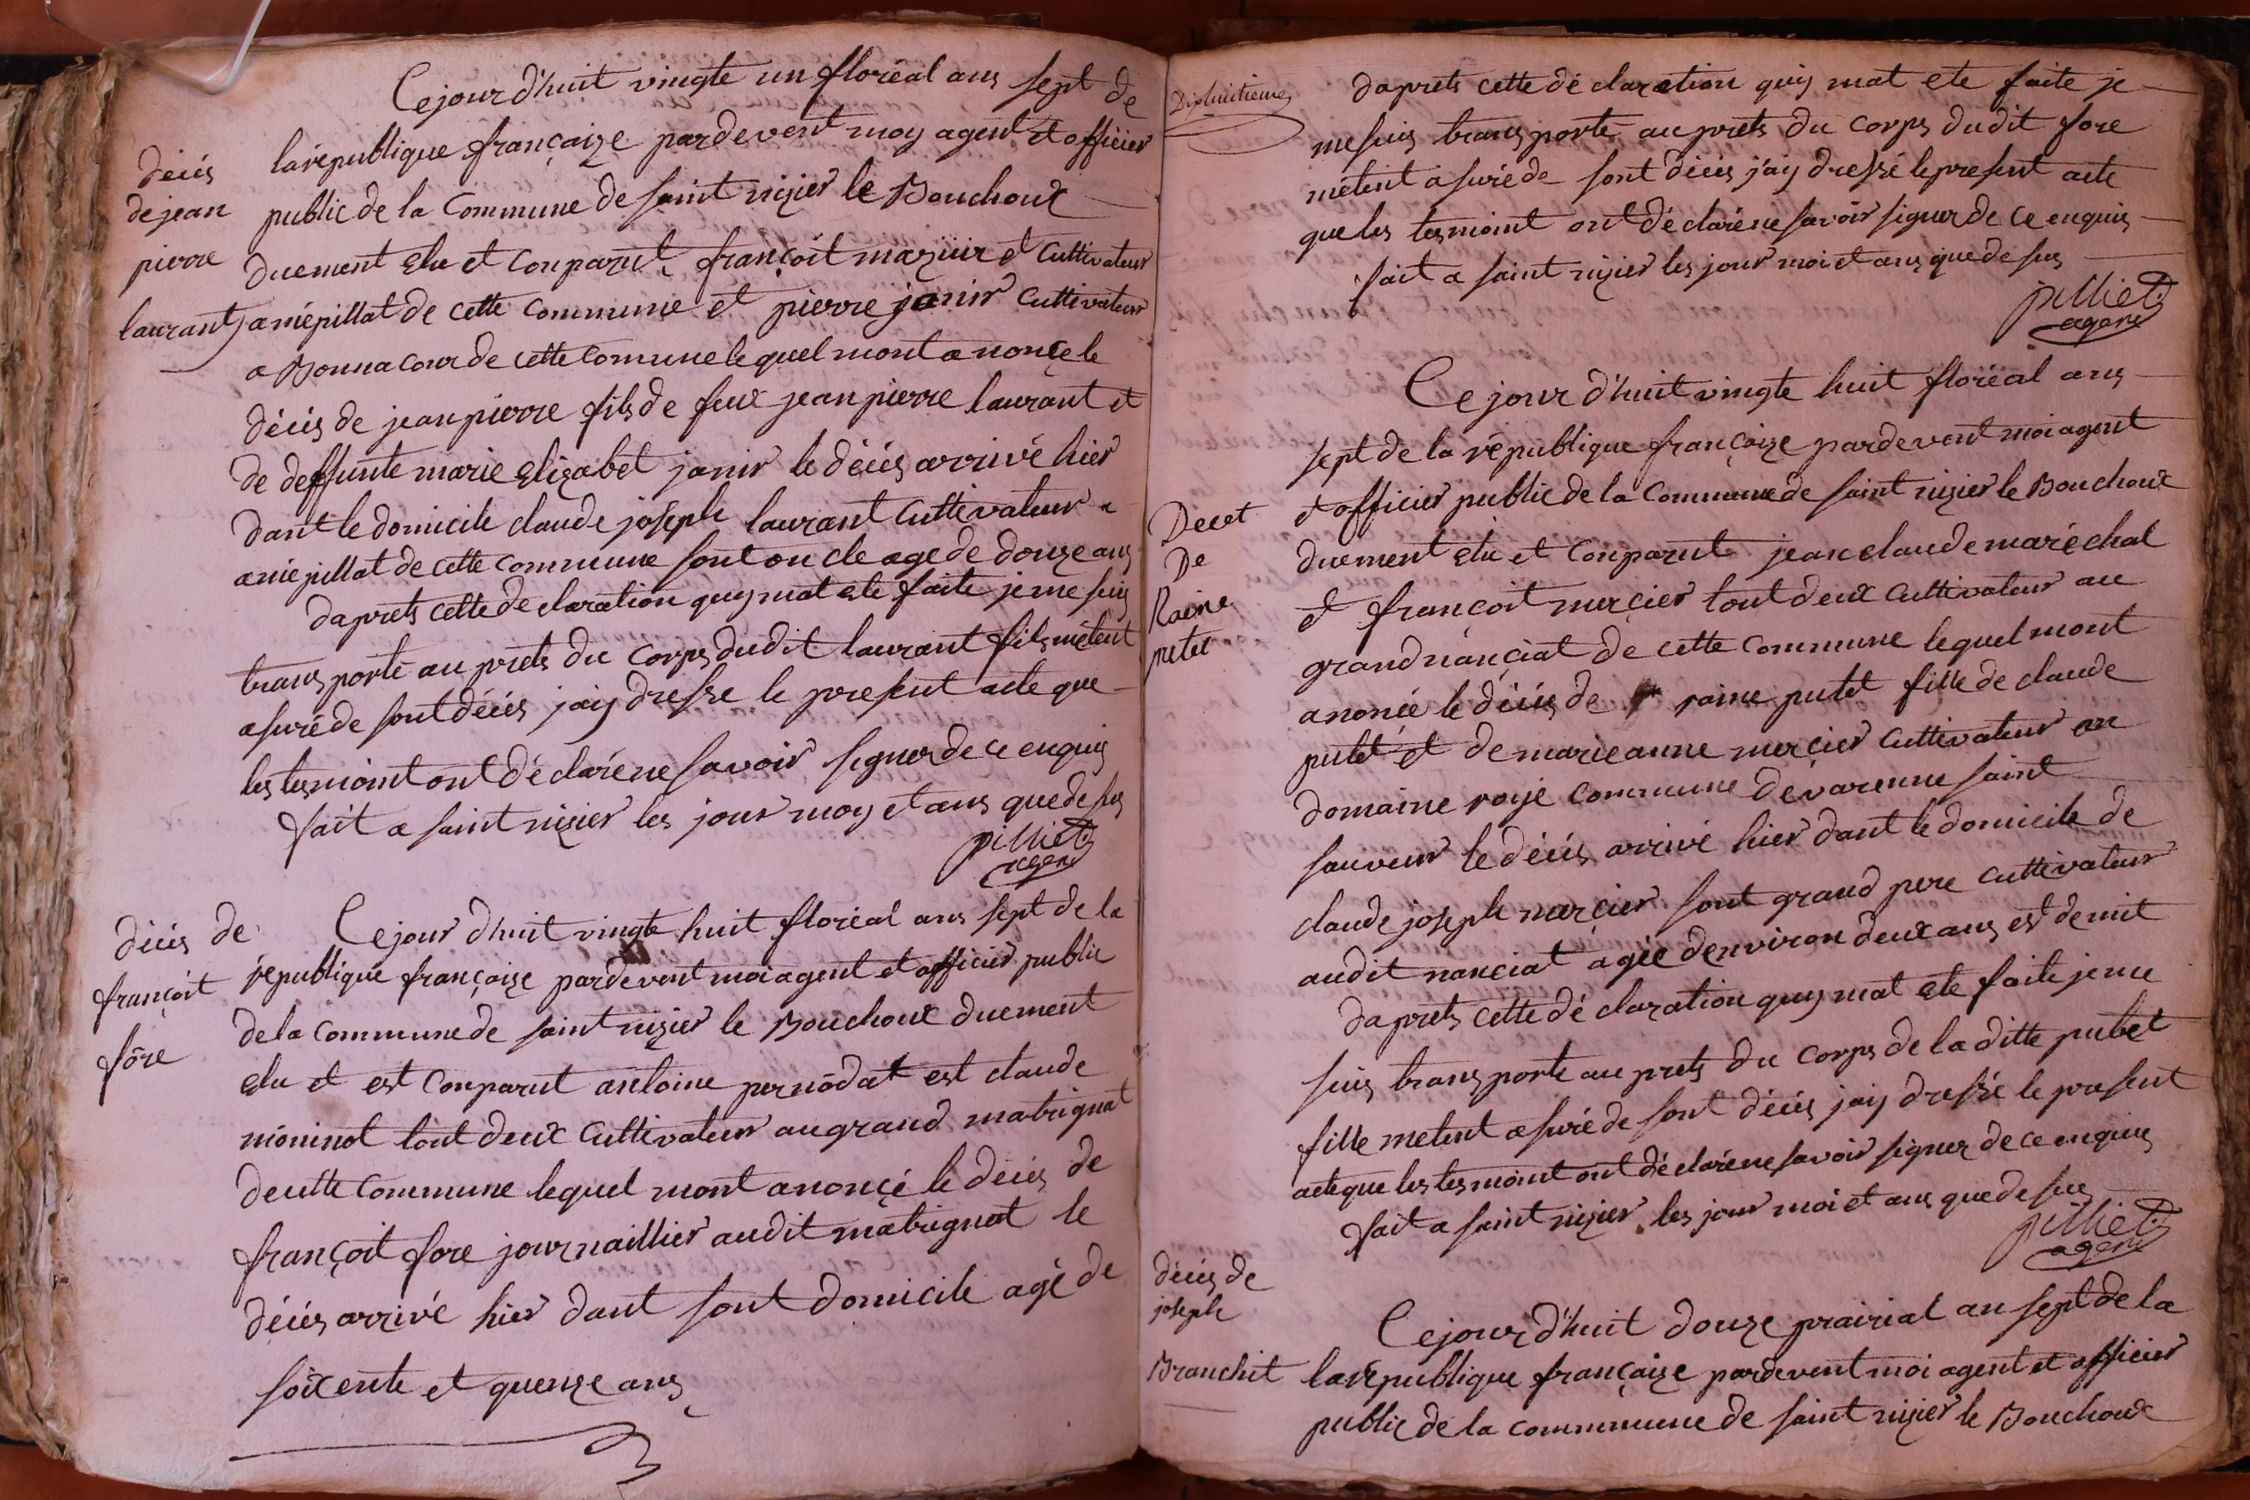 Ce jour d'huit vingte un floréal ans sept de
la republique françaize pardevent moy agent et officier
public de la Commune de saint nizier le Bouchoux
duement elu et Conparut françoit mazuir et Cultivateur
a niépillat de cette Commune et pierre janir Cultivateur
a Bonnacour de cette Comune lequel mont anonçe le
décés de jean pierre fils de feux jean pierre laurant et
de deffunte marie elizabet janir le décés arrivé hier
dant le domicile claude joseph laurant Cultivateur a
a niepillat de cette Commune sont oncle age de douze ans
daprets cette declaration quy mat ete faite je me suis
transporté au prets du Corps dudit laurant fils métent
asuré de sont décés jaiy dressé le present acte que
les tesmoint ont déclaré ne savoir signer de ce enquis
fait a saint nizier les jour moy et ans que de sus
pilliet
agent
décés
de jean
pierre
laurant
Ce jour d'huit vingte huit floréal ans sept de la
republique françaize pardevent moi agent et officier public
de la Commune de saint nizier le Bouchoux duement
elu et est Conparut antoine pernodat est claude
moninot tout deux Cultivateur au grand matrignat
de cette Commune lequel mont anonçé le decés de
françoit fore journaillier audit matrignat le
décés arrivé hier dant sont domicile agé de
soixente et quenze ans
décés de
françoit
fore
Dixhuitieme
daprets cette dé claration quiy mat ete faite je
me suis transporte au prets du Corps dudit fore
métent asuré de sont décés j'aiy dressé le present acte
que les tesmoint ont déclaré ne savoir signer de ce enquis
fait a saint nizier les jour moi et ans que de sus
pilliet
agent
Ce jour d'huit vingte huit floréal ans
sept de la republique françaize pardevent moi agent
et officier public de la Commune de saint nizier le Bouchoux
duement elu et Conparut jean claude maréchal
et françoit mercier tout deux Cultivateur au
grand nançiat de cette Commune lequel mont
anoncé le décés de raine putet fille de claude
putet et de marie anne mercier Cultivateur au
domaine roye Commune dévarenne saint
sauveur le décés arrivé hier dant le domicile de
claude joseph mercier sont grand pere Cultivateur
audit nanciat agée denviron deux ans est demit
daprets cette dé claration quy mat ete faite je me
suis transporte au prets du Corps de la ditte putet
fille metent asuré de sont décés jaiy dressé le present
acte que les tesmoint ont déclaré ne savoir signer de ce enquis
fait a saint nizier les jour moi et ans que de sus
pilliet
agent
Decet
De
Raine
putet
Ce jour d'huit douze prairial an sept de la
la republique françaize pardevent moi agent et officier
public de la Commune de saint nizier le Bouchoux
décés de
joseph
Branchit